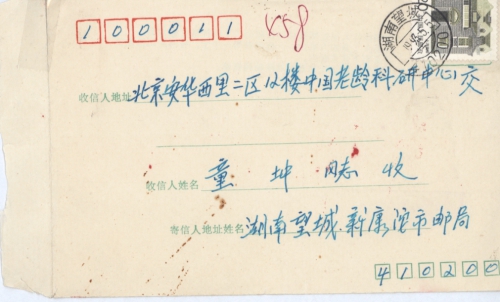 100011 458
湖南望
收信人地址 北京安华西里二区12楼中国老龄科研中心交
收信人姓名 童坤同志收
寄信人地址姓名 湖南望城新康湾市邮局
410200